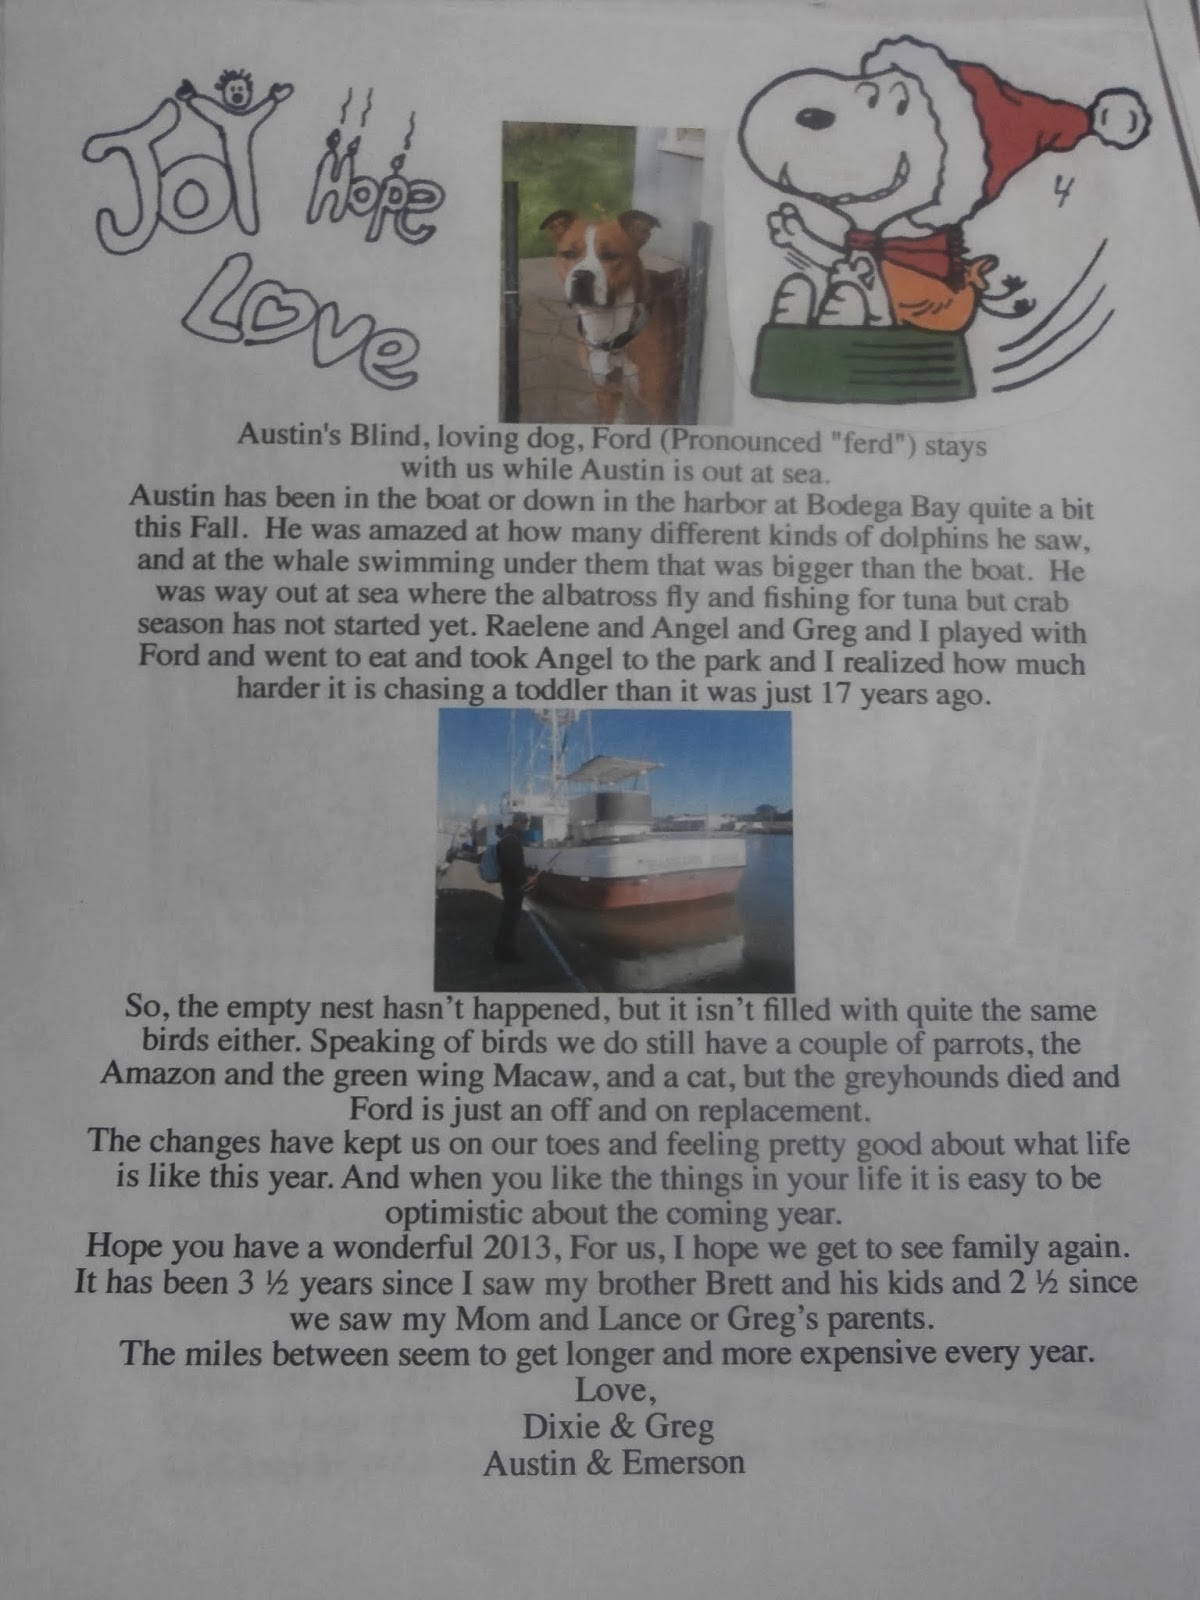 JOY Hope
Love
4
Austin's Blind, loving dog, Ford (Pronounced "ferd") stays
with us while Austin is out at sea.
Austin has been in the boat or down in the harbor at Bodega Bay quite a bit
this Fall.  He was amazed at how many different kinds of dolphins he saw,
and at the whale swimming under them that was bigger than the boat.  He
was way out at sea where the albatross fly and fishing for tuna but crab
season has not started yet. Raelene and Angel and Greg and I played with
Ford and went to eat and took Angel to the park and I realized how much
harder it is chasing a toddler than it was just 17 years ago.
So, the empty nest hasn’t happened, but it isn’t filled with quite the same
birds either. Speaking of birds we do still have a couple of parrots, the
Amazon and the green wing Macaw, and a cat, but the greyhounds died and
Ford is just an off and on replacement.
The changes have kept us on our toes and feeling pretty good about what life
is like this year. And when you like the things in your life it is easy to be
optimistic about the coming year.
Hope you have a wonderful 2013, For us, I hope we get to see family again.
It has been 3 ½ years since I saw my brother Brett and his kids and 2 ½ since
we saw my Mom and Lance or Greg’s parents.
The miles between seem to get longer and more expensive every year.
Love,
Dixie & Greg
Austin & Emerson